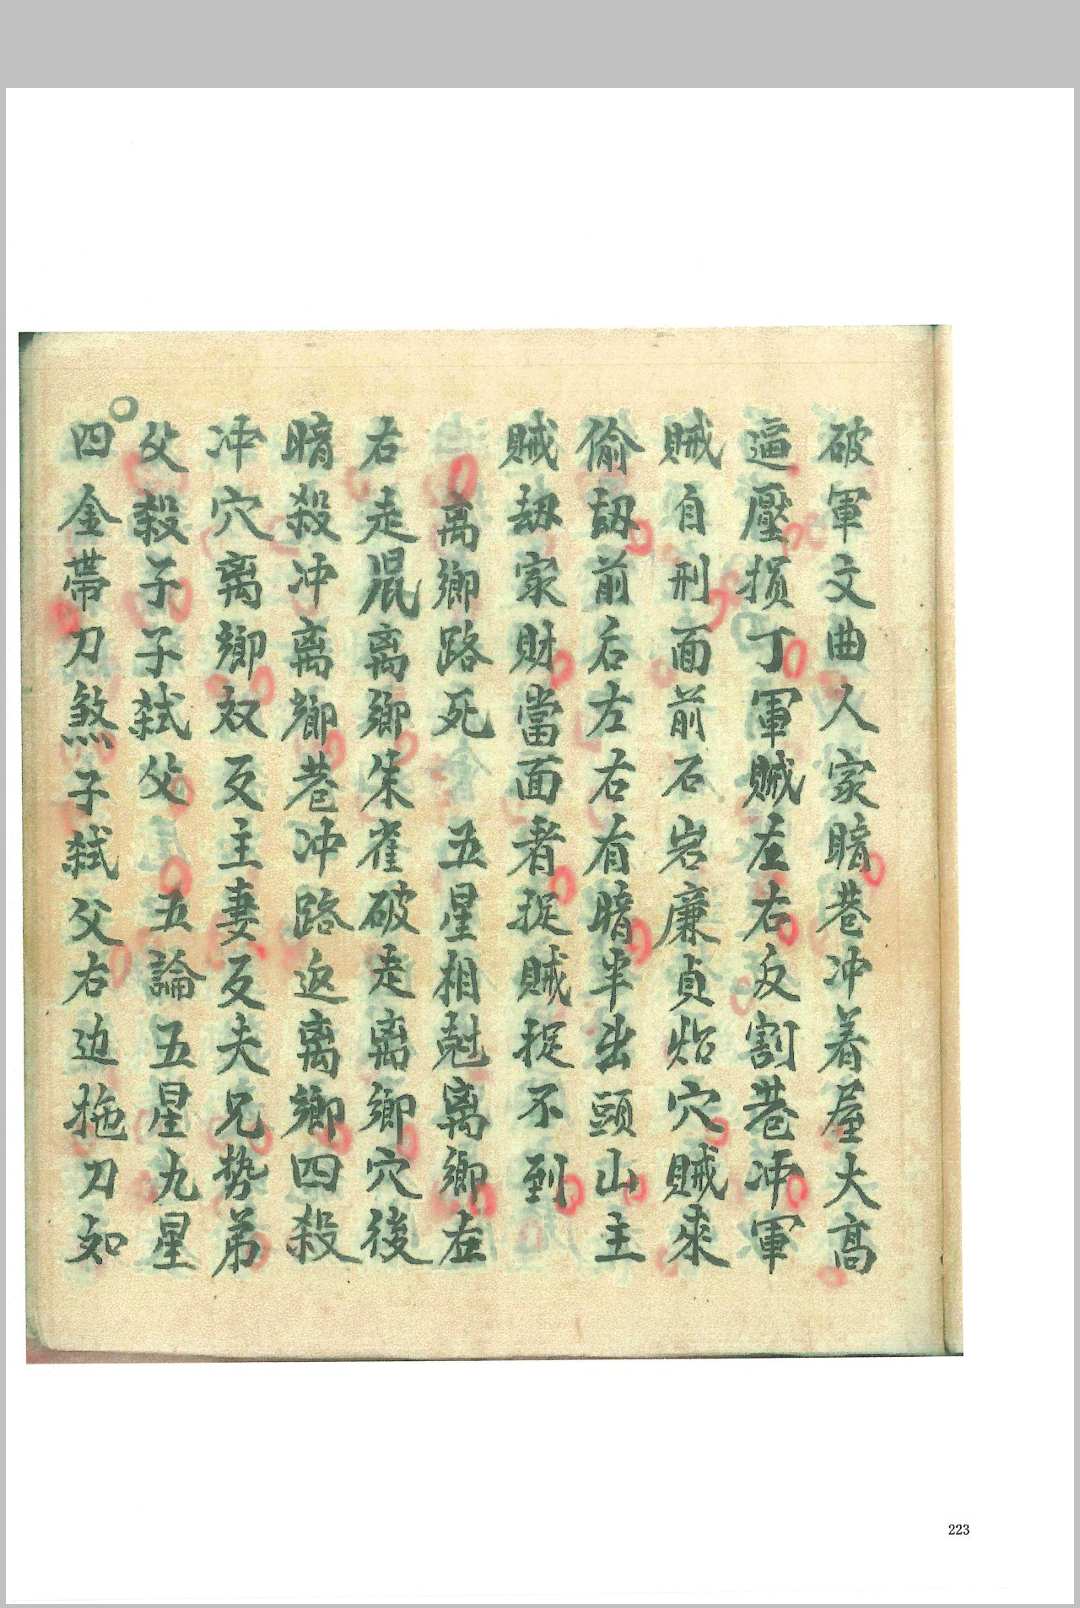 破軍文曲人家暗巷冲着屋大高
逼壓損丁軍賊左右反割巷冲軍
賊自刑面前石岩廉貞焰穴賊來
偷劫前后左右有暗半出頭山主
賊劫家財當面者捉賊捉不到
离鄉路死 五星相尅离鄉左
右走鼠离鄉朱雀破走离鄉穴後
暗殺冲离鄉巷冲路返离鄉四殺
冲穴离鄉奴反主妻反夫兄势弟
父殺子子弑父 五論五星九星
四金帶刀煞子弑父右边拖刀如
223